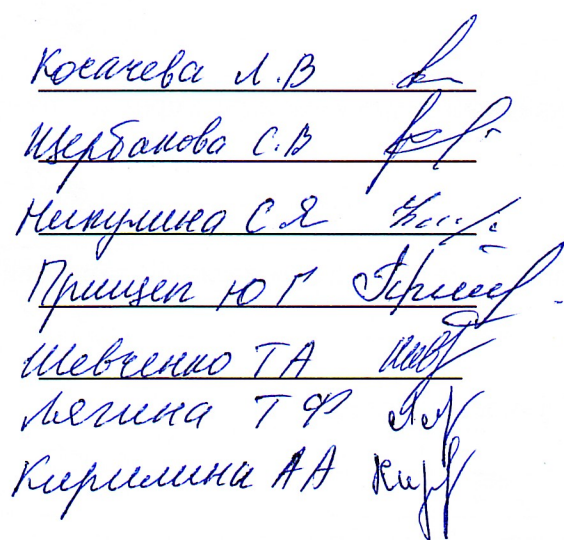 Косачева Л.В
Щербакова С.В
Никулина С Я
Прищеп Ю Г
Шевченко Т А
Лягина Т Ф
Кирилина А А